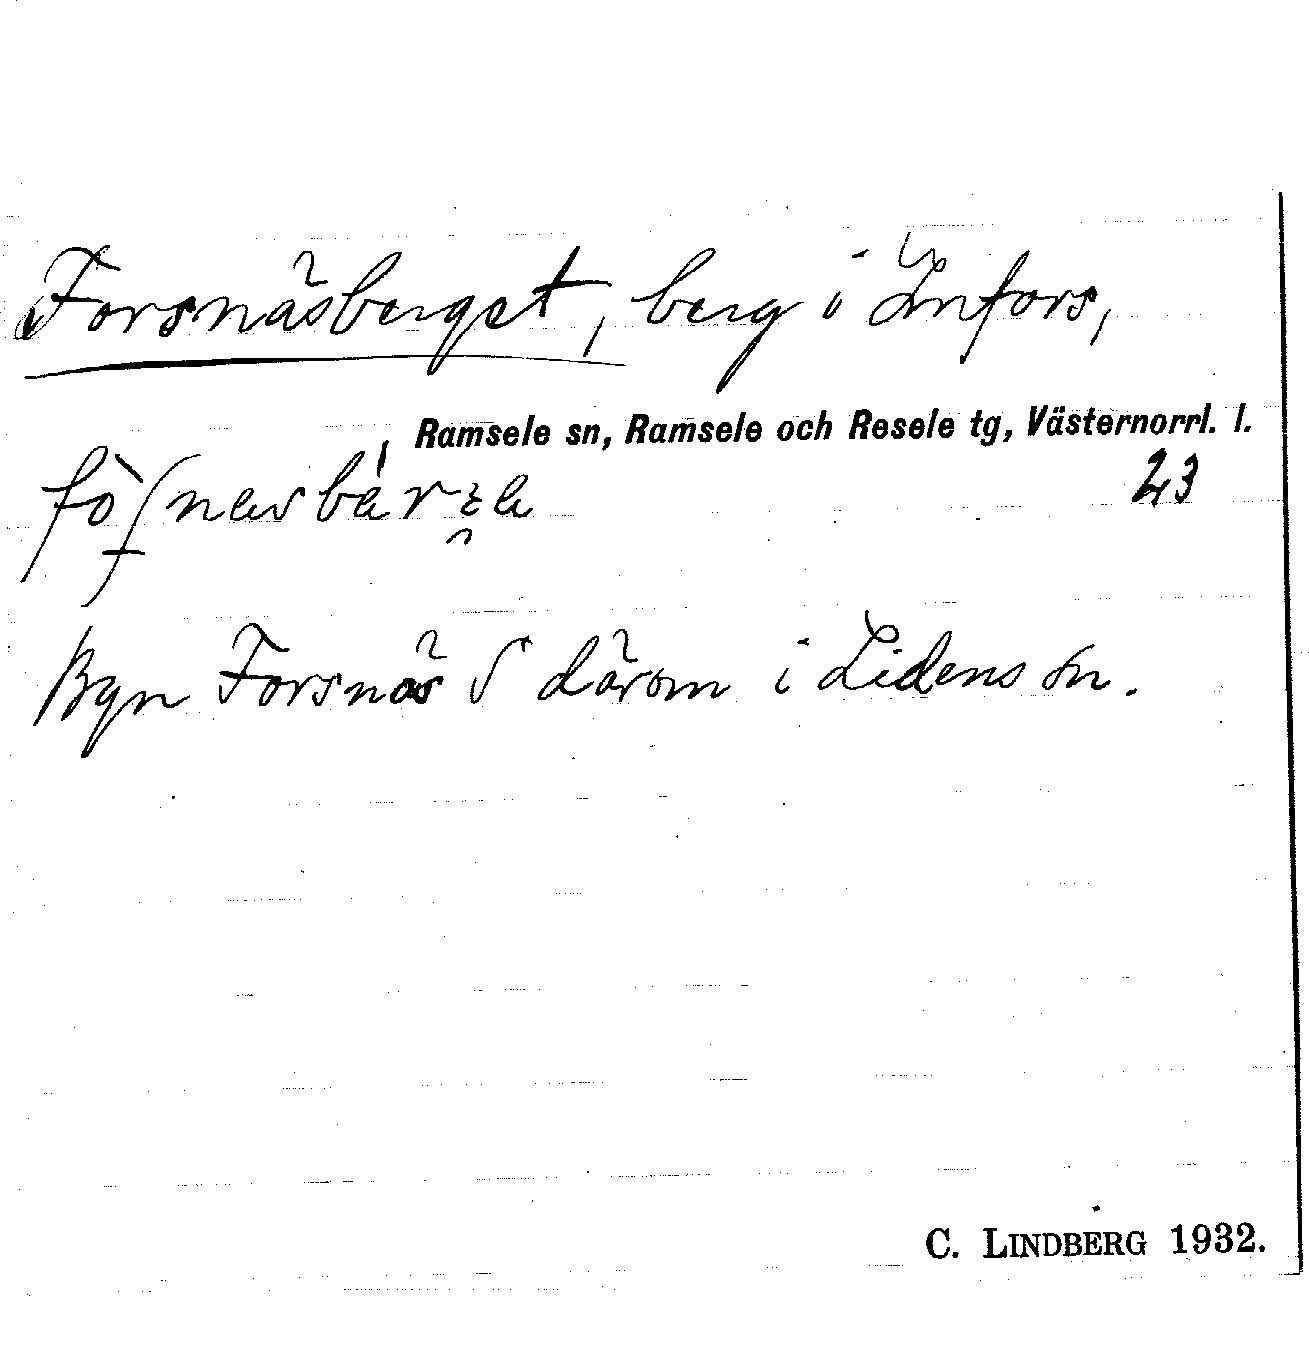 Forsnäsberget, berg i Imfors,
Ramsele sn, Ramsele och Resele tg, Västernorrl. l.
23
Byn Forsnäs S därom i Lidens sn.
C. LINDBERG 1932.